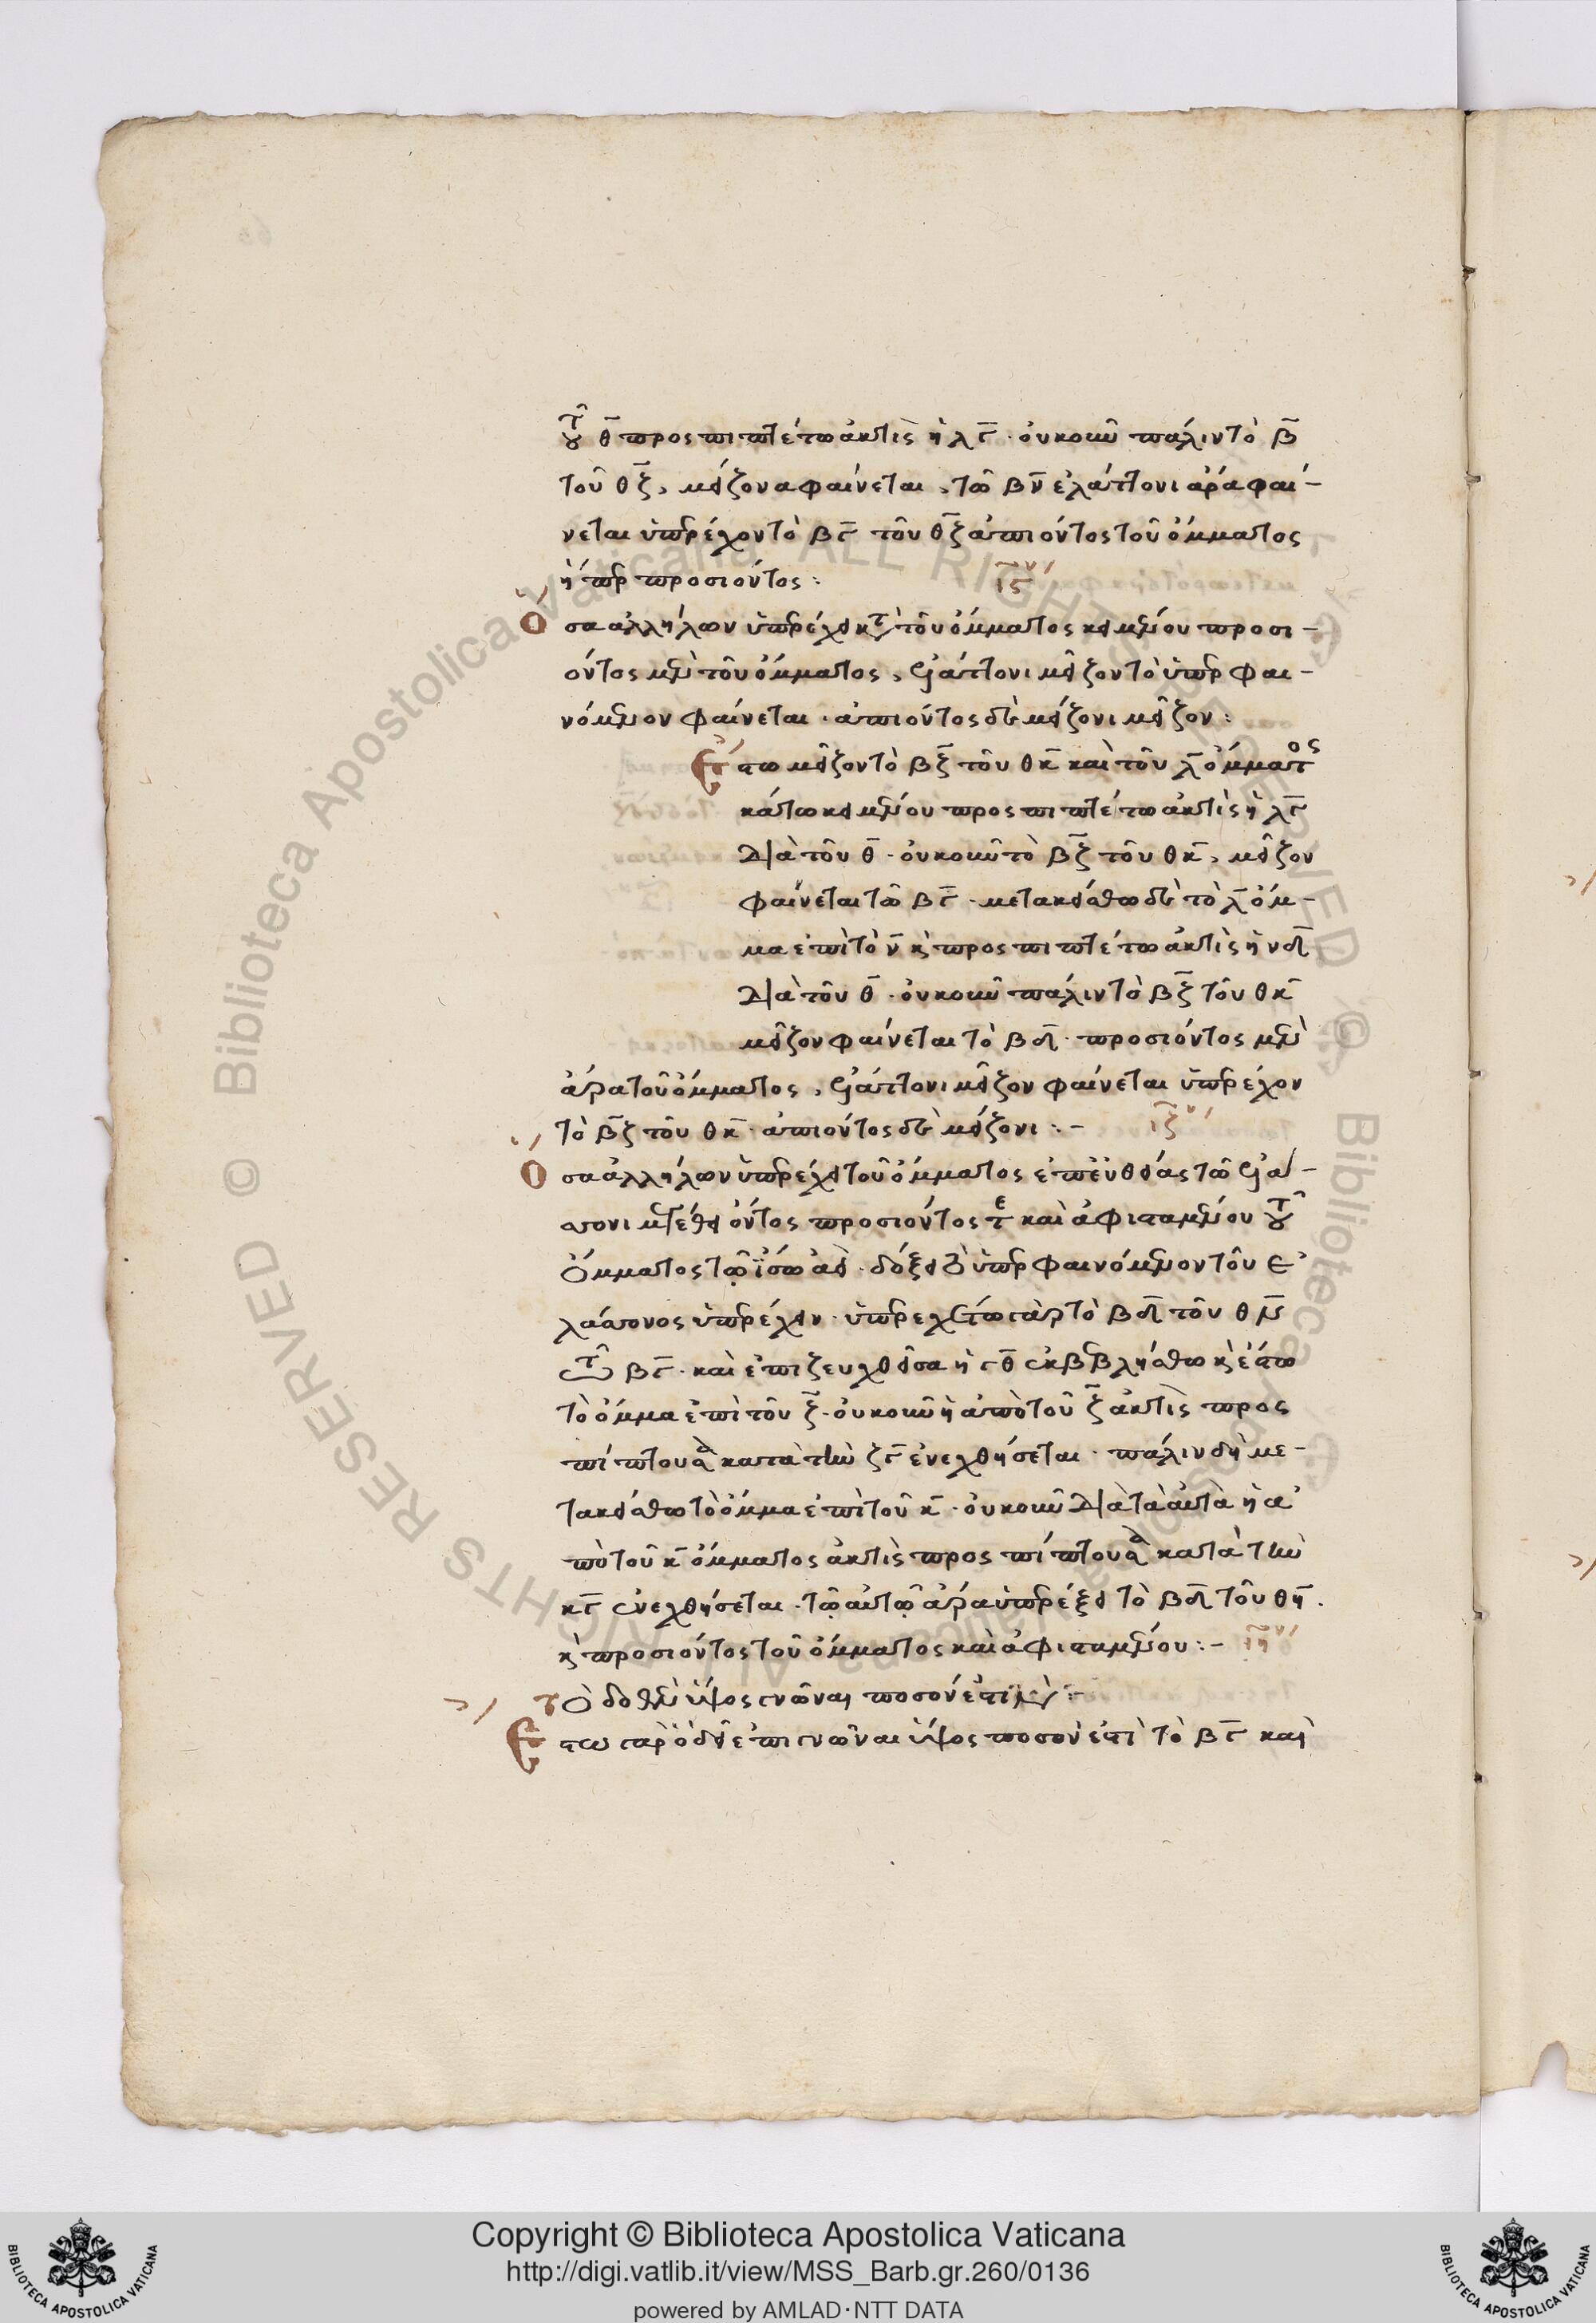 τοῦ θ προσπιπτέτω ἀκτὶς ἡ λγ · οὐκοῦν πάλιν τὸ β
τοῦ θζ, μείζονα φαίνεται, τῶ βν ἐλάττονι ἄρα φαί-
νεται ὑπερέχον τὸ βγ τοῦ θζ ἀπιόντος τοῦ ὄμματος
ἤπερ προσιόντος:
ιϛον
Ὅσα ἀλλήλων ὑπερέχει κάτω τοῦ ὄμματος κειμένου προσι-
όντος μὲν τοῦ ὄμματος, ἐλάττονι μεῖζον τὸ ὑπερφαι-
νόμενον φαίνεται · ἀπιόντος δὲ μείζονι μεῖζον:
Ἔστω μεῖζον τὸ βζ τοῦ θκ καὶ τοῦ λ ὄμματος
κάτω κειμένου προσπιπτέτω ἀκτὶς ἡ λγ
διὰ τοῦ θ · οὐκοῦν τὸ βζ τοῦ θκ, μεῖζον
φαίνεται τῶ βγ · μετακείσθω δὲ τὸ λ ὄμ-
μα ἐπὶ τὸ ν κὶ προσπιπτέτω ἀκτὶς ἡ νδ
διὰ τοῦ θ · οὐκοῦν πάλιν τὸ βζ τοῦ θκ
μεῖζον φαίνεται τὸ βδ · προσιόντος μὲν
ἄρα τοῦ ὄμματος, ἐλάττονι μεῖζον φαίνεται ὑπερέχον
τὸ βζ τοῦ θκ · ἀπιόντος δὲ μείζονι :-
ιζον
Ὅσα ἀλλήλων ὑπερέχει τοῦ ὄμματος ἐπ' εὐθείας τῶ ἐλάτ-
τονι μεγέθει ὄντος προσιόντος τε καὶ ἀφισταμένου τοῦ
ὄμματος τῷ ἴσῳ ἀεὶ · δόξει τὸ ὑπερφαινόμενον τοῦ ἐ
λάττονος ὑπερέχειν · ὑπερεχέτω γὰρ τὸ βδ τοῦ θη
τῶ βγ · καὶ ἐπιζευχθεῖσα ἡ γθ ἐκβεβλήσθω κὶ ἔστω
τὸ ὄμμα ἐπὶ τοῦ ζ · οὐκοῦν ἡ ἀπὸ τοῦ ζ ἀκτὶς προς
πίπτουσα κατὰ τὴν ζγ ἐνεχθήσεται · πάλιν δὴ με-
τακείσθω τὸ ὄμμα ἐπὶ τοῦ κ · οὐκοῦν διὰ τὰ αὐτὰ ἡ ἀ
πὸ τοῦ κ ὄμματος ἀκτὶς προσπίπτουσα κατὰ τὴν
κγ ἐνεχθήσεται · τῷ αὐτῷ ἄρα ὑπερέξει τὸ βδ τοῦ θη.
κὶ προσιόντος τοῦ ὄμματος καὶ ἀφισταμένου :-
ιηον
Τὸ δοθὲν ὕψος γνῶναι πόσον ἐστίν :-
Ἔστω γὰρ ὃ δεῖ ἐπιγνῶναι ὕψος πόσον ἐστὶ τὸ βγ καὶ
Copyright © Biblioteca Apostolica Vaticana
http://digi.vatlib.it/view/MSS_Barb.gr.260/0136
powered by AMLAD·NTT DATA